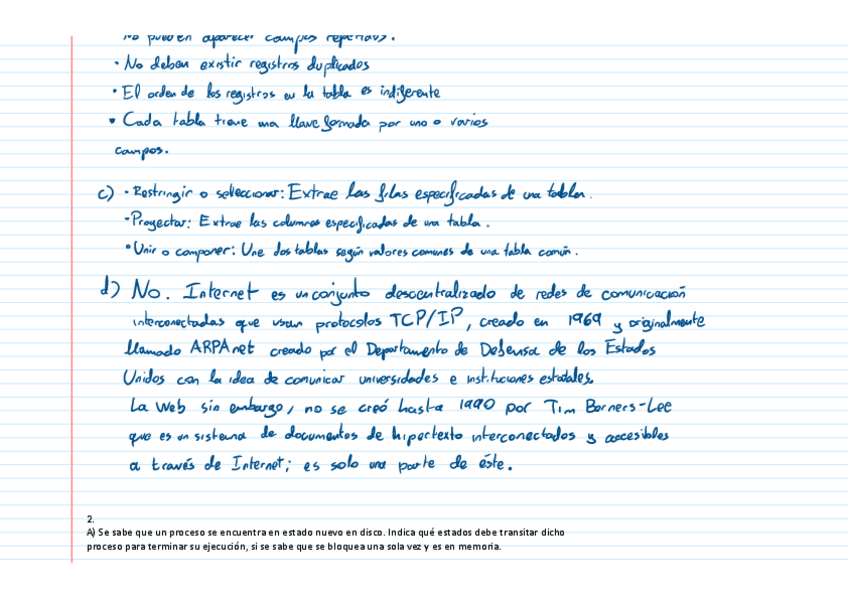 no pueden aparecer campos repetidos.
· No deben existir registros duplicados
· El orden de los registros en la tabla es indiferente
· Cada tabla tiene una llave formada por uno o varios
campos.
c) · Restringir o seleccionar: Extrae las filas especificadas de una tabla.
· Proyectar: Extrae las columnas especificadas de una tabla.
· Unir o componer: Une dos tablas según valores comunes de una tabla común.
d) No. Internet es un conjunto descentralizado de redes de comunicación
interconectadas que usan protocolos TCP/IP, creado en 1969 y originalmente
llamado ARPAnet creado por el Departamento de Defensa de los Estados
Unidos con la idea de comunicar universidades e instituciones estatales.
La Web sin embargo, no se creó hasta 1990 por Tim Berners-Lee
que es un sistema de documentos de hipertexto interconectados y accesibles
a través de Internet; es solo una parte de éste.
2.
A) Se sabe que un proceso se encuentra en estado nuevo en disco. Indica qué estados debe transitar dicho
proceso para terminar su ejecución, si se sabe que se bloquea una sola vez y es en memoria.